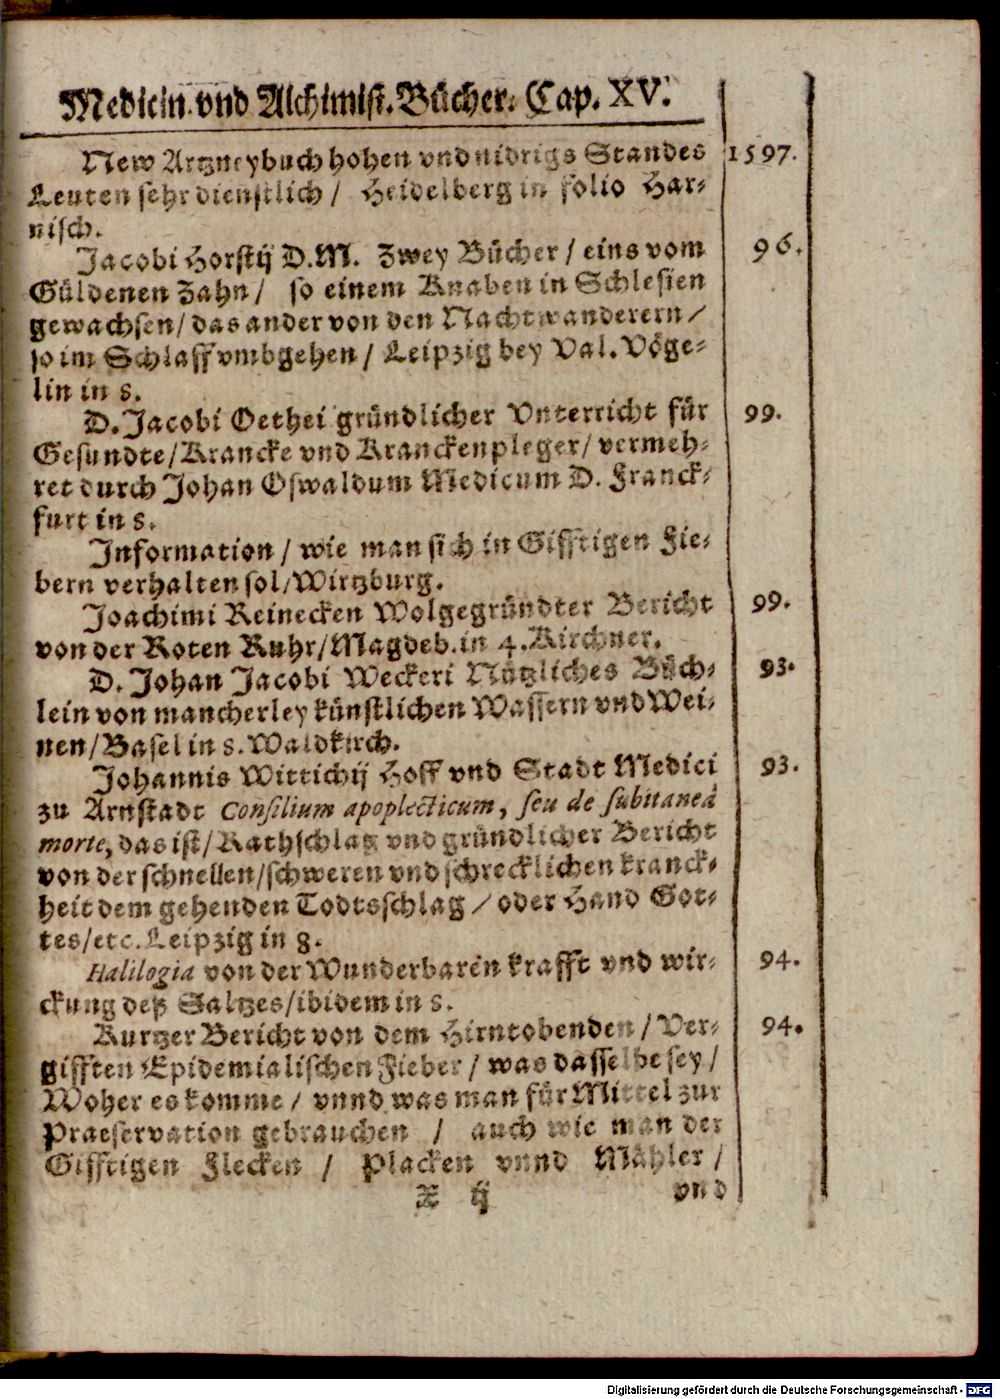 Medicin. vnd Alchimist. Bücher. Cap. XV.
New Artzneybuch hohen vnd nidrigs Standes 1597.
Leuten sehr dienstlich / Heidelberg in folio Har-
nisch.
Jacobi Horstij D.M. Zwey Bücher / eins vom 96.
Güldenen Zahn / so einem Knaben in Schlesien
gewachsen / das ander von den Nachtwanderern /
so im Schlaff vmbgehen / Leipzig bey Val. Vöge-
lin in 8.
D. Jacobi Oethei gründlicher Vnterricht für 99.
Gesundte / Krancke vnd Kranckenpleger / vermeh-
ret durch Johan Oswaldum Medicum D. Franck-
furt in 8.
Information / wie man sich in Gifftigen Fie-
bern verhalten sol / Wirtzburg.
Joachimi Reinecken Wolgegründter Bericht 99.
von der Roten Ruhr / Magdeb. in 4. Kirchner.
D. Johan Jacobi Weckeri Nützliches Büch- 93.
lein von mancherley künstlichen Wassern vnd Wei-
nen / Basel in 8. Waldkirch.
Johannis Wittichij Hoff vnd Stadt Medici 93.
zu Arnstadt Consilium apoplecticum, seu de subitaneâ
morte, das ist / Rathschlag vnd gründlicher Bericht
von der schnellen / schweren vnd schrecklichen kranck-
heit dem gehenden Todtsschlag / oder Hand Got-
tes / etc. Leipzig in 8.
Halilogia von der Wunderbaren krafft vnd wir- 94.
ckung deß Saltzes / ibidem in 8.
Kurtzer Bericht von dem Hirntobenden / Ver- 94.
gifften Epidemialischen Fieber / was dasselbe sey /
Woher es komme / vnnd was man für Mittel zur
Praeservation gebrauchen / auch wie man der
Gifftigen Flecken / Placken vnnd Mähler /
X ij vnd
Digitalisierung gefördert durch die Deutsche Forschungsgemeinschaft - DFG